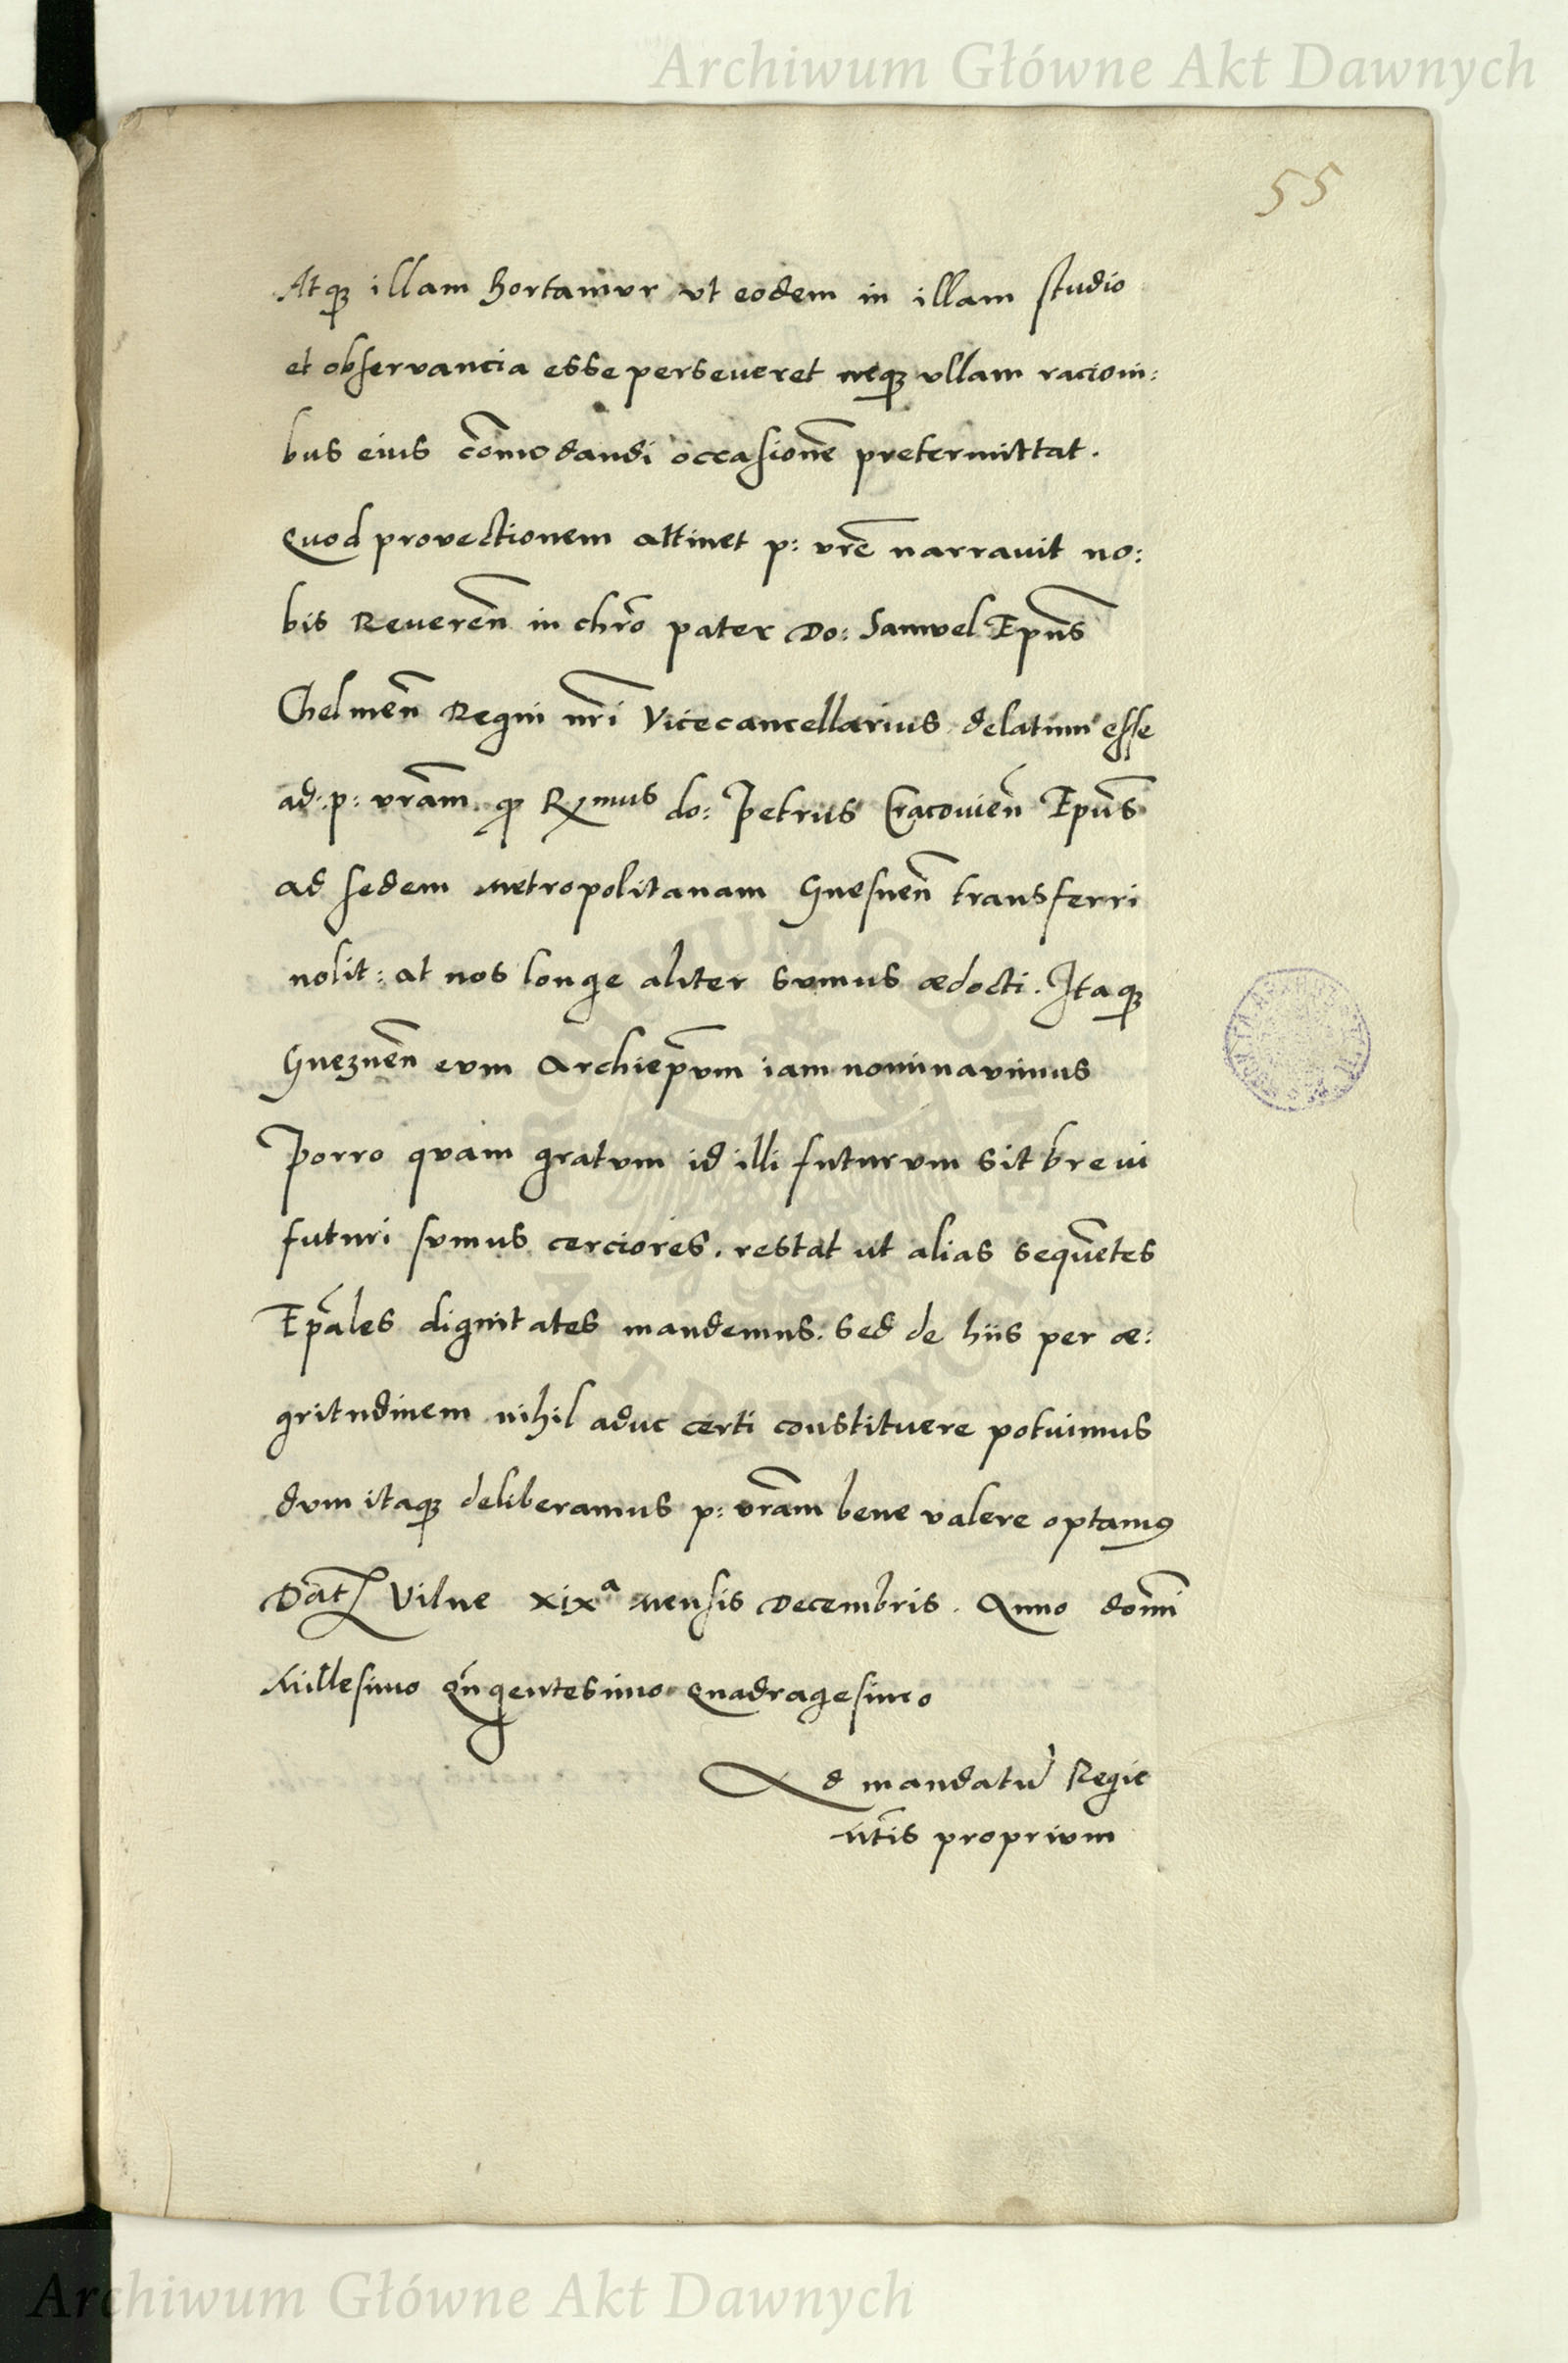 Archiwum Główne Akt Dawnych
55
Atq; illam hortamur ut eodem in illam studio
et observancia esse perseveret neq; ullam racioni:
bus eius cōmodandi occasionē pretermittat.
Quod provectionem attinet p: vrē narravit no:
bis Reverēn in chrō pater Do: Samuel Epūs
Chelmēn Regni nrī Vicecancellarius delatum esse
ad p: vrām q Rmus do: Petrus Cracoviēn Epūs
ad sedem metropolitanam Gnesnēn transferri
nolit: at nos longe aliter sumus ædocti. Itaq;
Gneznēn eum Archiep̄um iam nominavimus
Porro quam gratum id illi futurum sit brevi
futuri sumus cerciores. restat ut alias sequētes
Ep̄ales dignitates mandemus. Sed de hiis per æ:
gritudinem nihil aduc certi constituere potuimus
dum itaq; deliberamus p: vrām bene valere optamꝰ
Dāt Vilne xixᵃ mensis Decembris. Anno domī
Millesimo qn̄gentesimo quadragesimo
Ad mandatū Regie
Mtīs proprium
ARCHIWUM GŁÓWNE
AKT DAWNYCH
Archiwum Główne Akt Dawnych